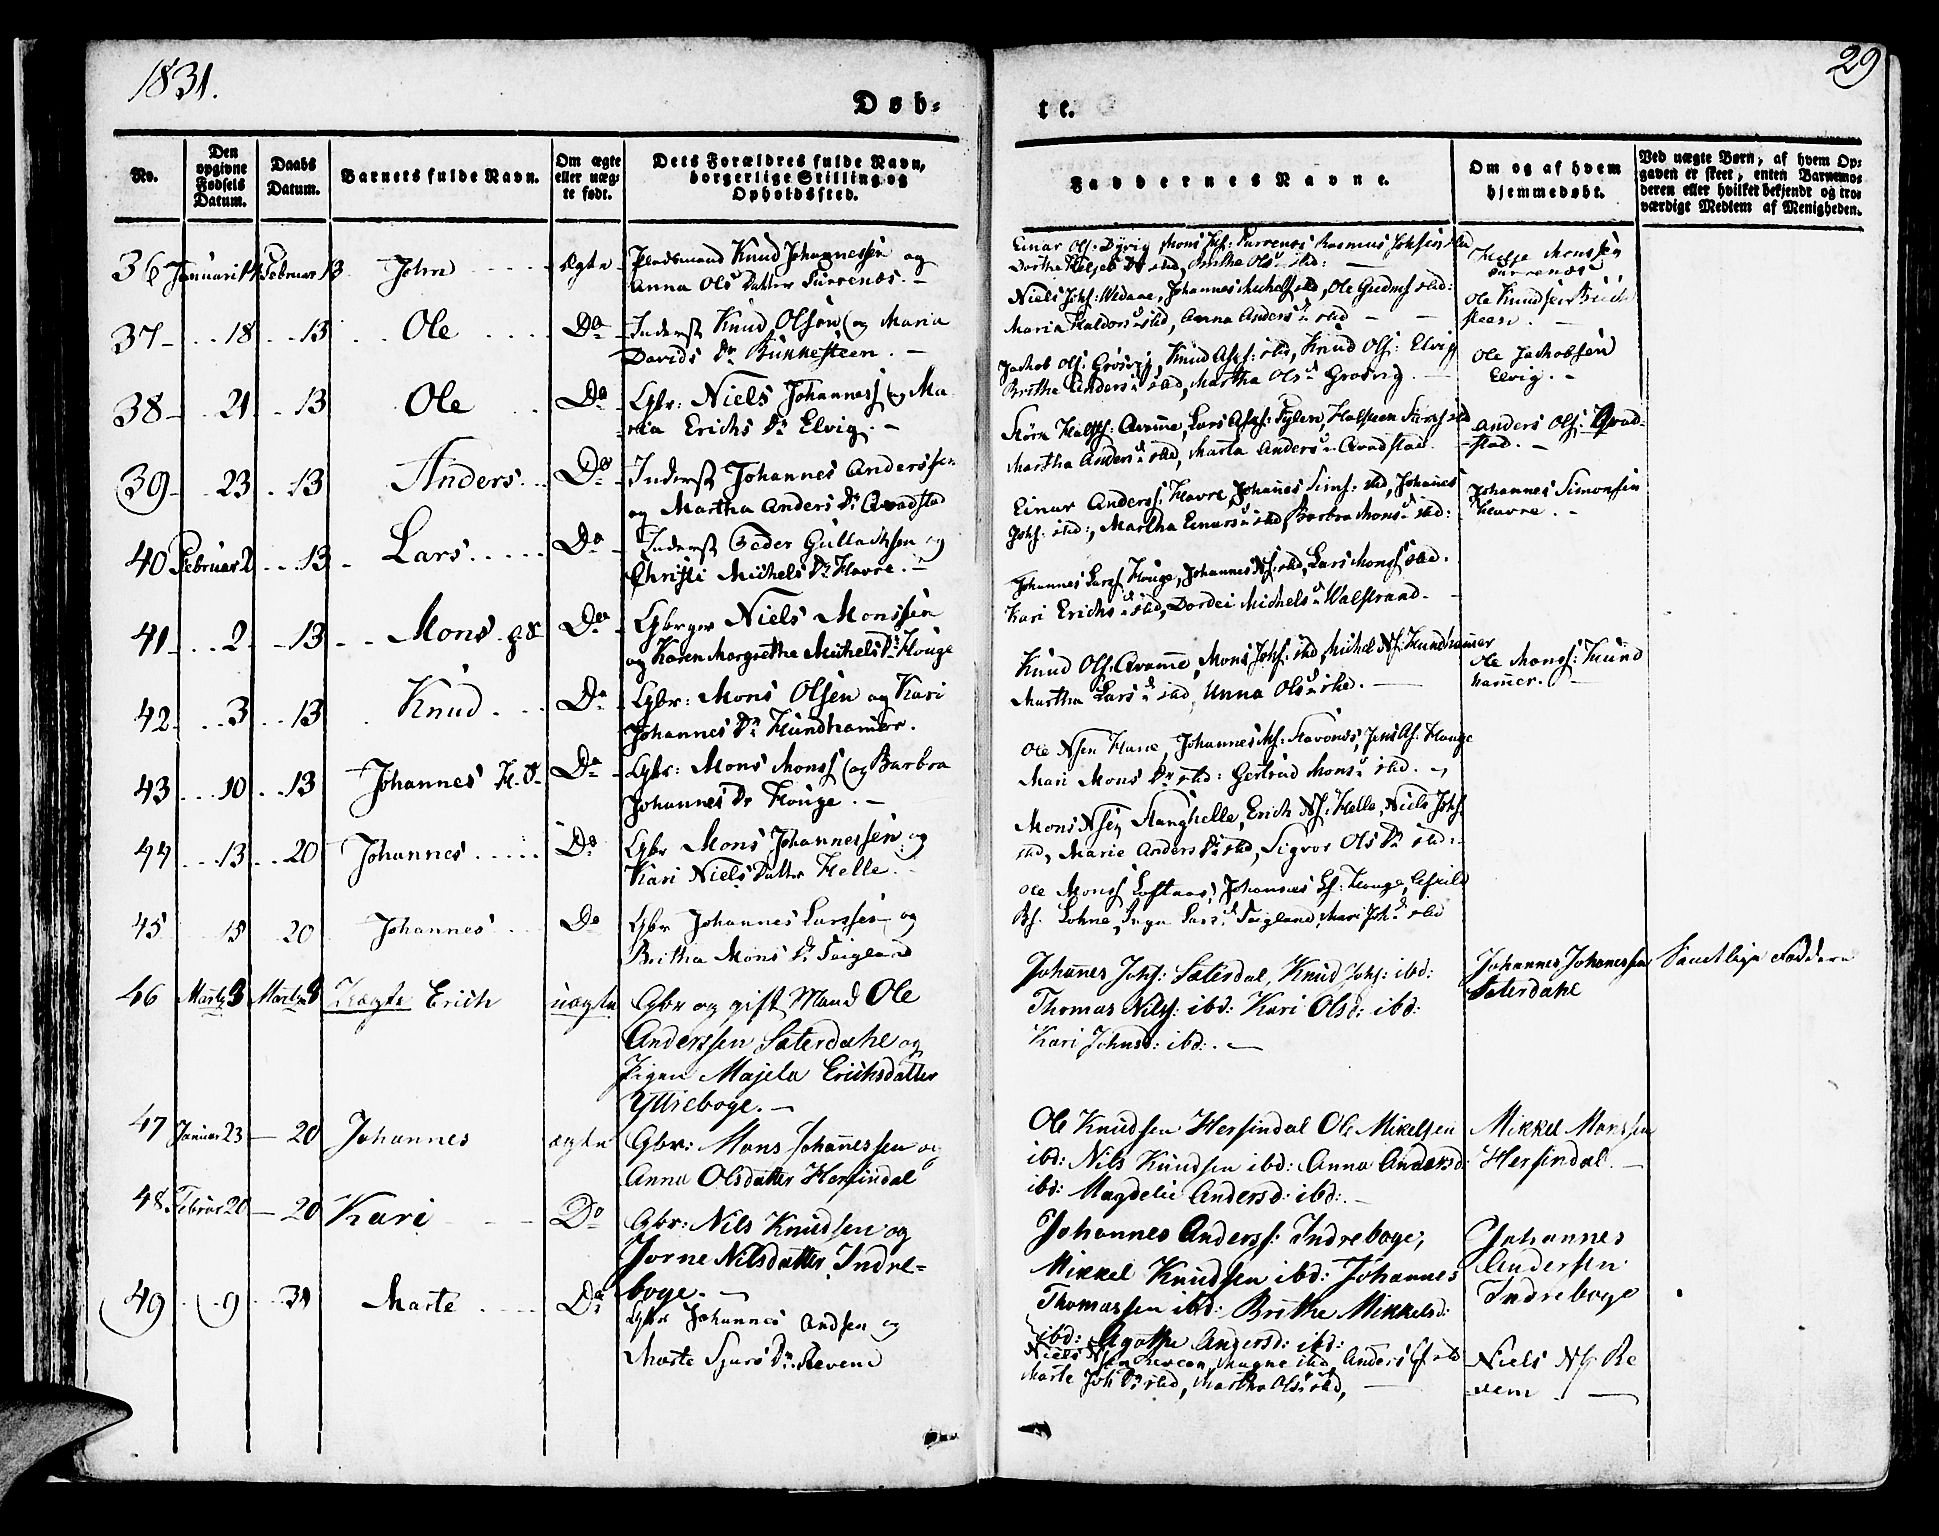 1831.
29
Døb-
te.
No.
Den opgivne Fødsels Datum.
Daabs Datum.
Barnets fulde Navn.
Om ægte eller uægte født.
Dets Forældres fulde Navn, borgerlige Stilling og Opholdssted.
Faddernes Navne.
Om og af hvem hjemmedøbt.
Ved uægte Børn, af hvem Opgaven er skeet, enten Barnemoderen eller hvilket bekjendt og troværdigt Medlem af Menigheden.
36 Januari 14 Februar 13 John Ægte Pladsmand Knud Johannessen og
Anna Ols Datter Furrenæs.
Helje Monssen
Furrenæs
37 18 13 Ole Do Inderst Knud Olsen og Maria
Davids Dr Bukkesteen.
Niels Johs: Wedaae, Johannes Michels sted, Ole Gudms sted:
Maria Haldors d sted, Anna Anders d sted
Ole Knudsen Buk
steen.
38 21 13 Ole Do Gbr: Niels Johanness og Ma
ria Erichs Dr Elvig.
Jachob Ols: Grøsvig, Knud Asks: sted, Knud Ols: Elvig
Britha Anders d sted, Martha Ols d Grøsvig.
Ole Jachobsen
Elvig.
39 23 13 Anders Do Inderst Johannes Anderssen
og Martha Anders Dr Qvadstad
Martha Anders d sted, Marta Anders d Qvadstad
Anders Ols: Qvad-
stad.
40 Februar 2 13 Lars Do Inderst Peder Gullachsen og
Christi Michels Dr Havre.
Einar Anderss: Havre, Johannes Sims: sted, Johannes
Johs: sted:, Martha Einars d sted, Barbra Mons d sted:
Johannes Simonsen
Havre.
41 2 13 Mons Do Gbr Niels Monssen
og Karen Margrethe Michels Dr Houge
Johannes Larss Houge, Johannes Ns: sted, Lars Monss sted.
Kari Erichs d sted, Dordei Michels d Walstrand.
42 3 13 Knud Do Gbr: Mons Olsen og Kari
Johannes Dr Hundhamer.
Knud Ols: Qvamme, Mons Johs: sted, Michel Ns: Hundhammer
Martha Lars d sted, Anna Ols d sted.
Ole Monss: Hund
hammer.
43 10 13 Johannes H.D. Do Gbr: Mons Monss og Barbra
Johannes Dr Houge.
Mari Mons Dr sted: Gertrud Mons d sted.
44 13 20 Johannes Do Gbr Mons Johannessen og
Kari Niels Datter Helle.
Mons Nsen Stanghelle, Erich Ns: Helle, Niels Johs:
sted, Marie Anders Dr sted, Sigvor Ols Dr sted:
45 15 20 Johannes Do Gbr Johannes Larssen og
Britha Mons Dr Teigland
Ole Monss Loftaas, Johannes Ls: Houge,
Lohne, Inga Lars d Teigland, Mari Joh d sted
46 Marty 3 Marty Uægte Erich uægte Gbr og gift Mand Ole
Anderssen Sæterdahl og
Pigen Majela Erichsdatter
Yttreboge.
Johannes Johs: Sæterdal, Knud Johs: ibd:
Thomas Nilss: ibd: Kari Olsd: ibd:
Kari Johnsd: ibd:
Johannes Johannessen
Sæterdahl
Samtlige Faddere
47 Januar 23 20 Johannes ægte Gbr: Mons Johannessen og
Anna Olsdatter Hersindal
Ole Knudsen Hersindal Ole Mikelsen
ibd: Nils Knudsen ibd: Anna Andersd:
ibd: Magdeli Andersd: ibd:
Mikkel Monssen
Hersindal.
48 Februar 20 20 Kari Do Gbr: Nils Knudsen og
Jorne Nilsdatter Indre-
boge.
Johannes Anderss: Indreboge,
Mikkel Knudsen ibd: Johannes
Thomassen ibd: Brithe Mikkelsd:
ibd: Agathe Andersd: ibd:
Johannes
Andersen
Indreboge
49 9 Marte Do Gbr Johannes Andsen og
Marte Sjurs Dr Revem
Marte Joh Dr sted, Martha Ols d sted,
Niels Ns Re
vem